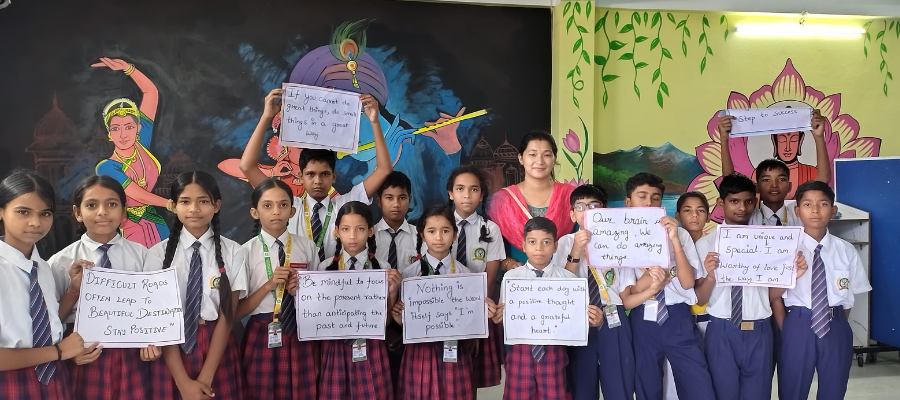 If you cannot do
great things, do small
things in a great
way
Step to success
DIFFICULT ROADS
OFTEN LEAD TO
BEAUTIFUL DESTINATION
STAY POSITIVE"
Be mindful to focus
on the present rather
than anticipating the
past and future
Nothing is
impossible the word
itself says "I'm
possible"
Start each day with
a positive thought
and a grateful
heart"
Our brain is
amazing. We
can do amazing
things.
I am unique and
special. I am
worthy of love just
the way I am.